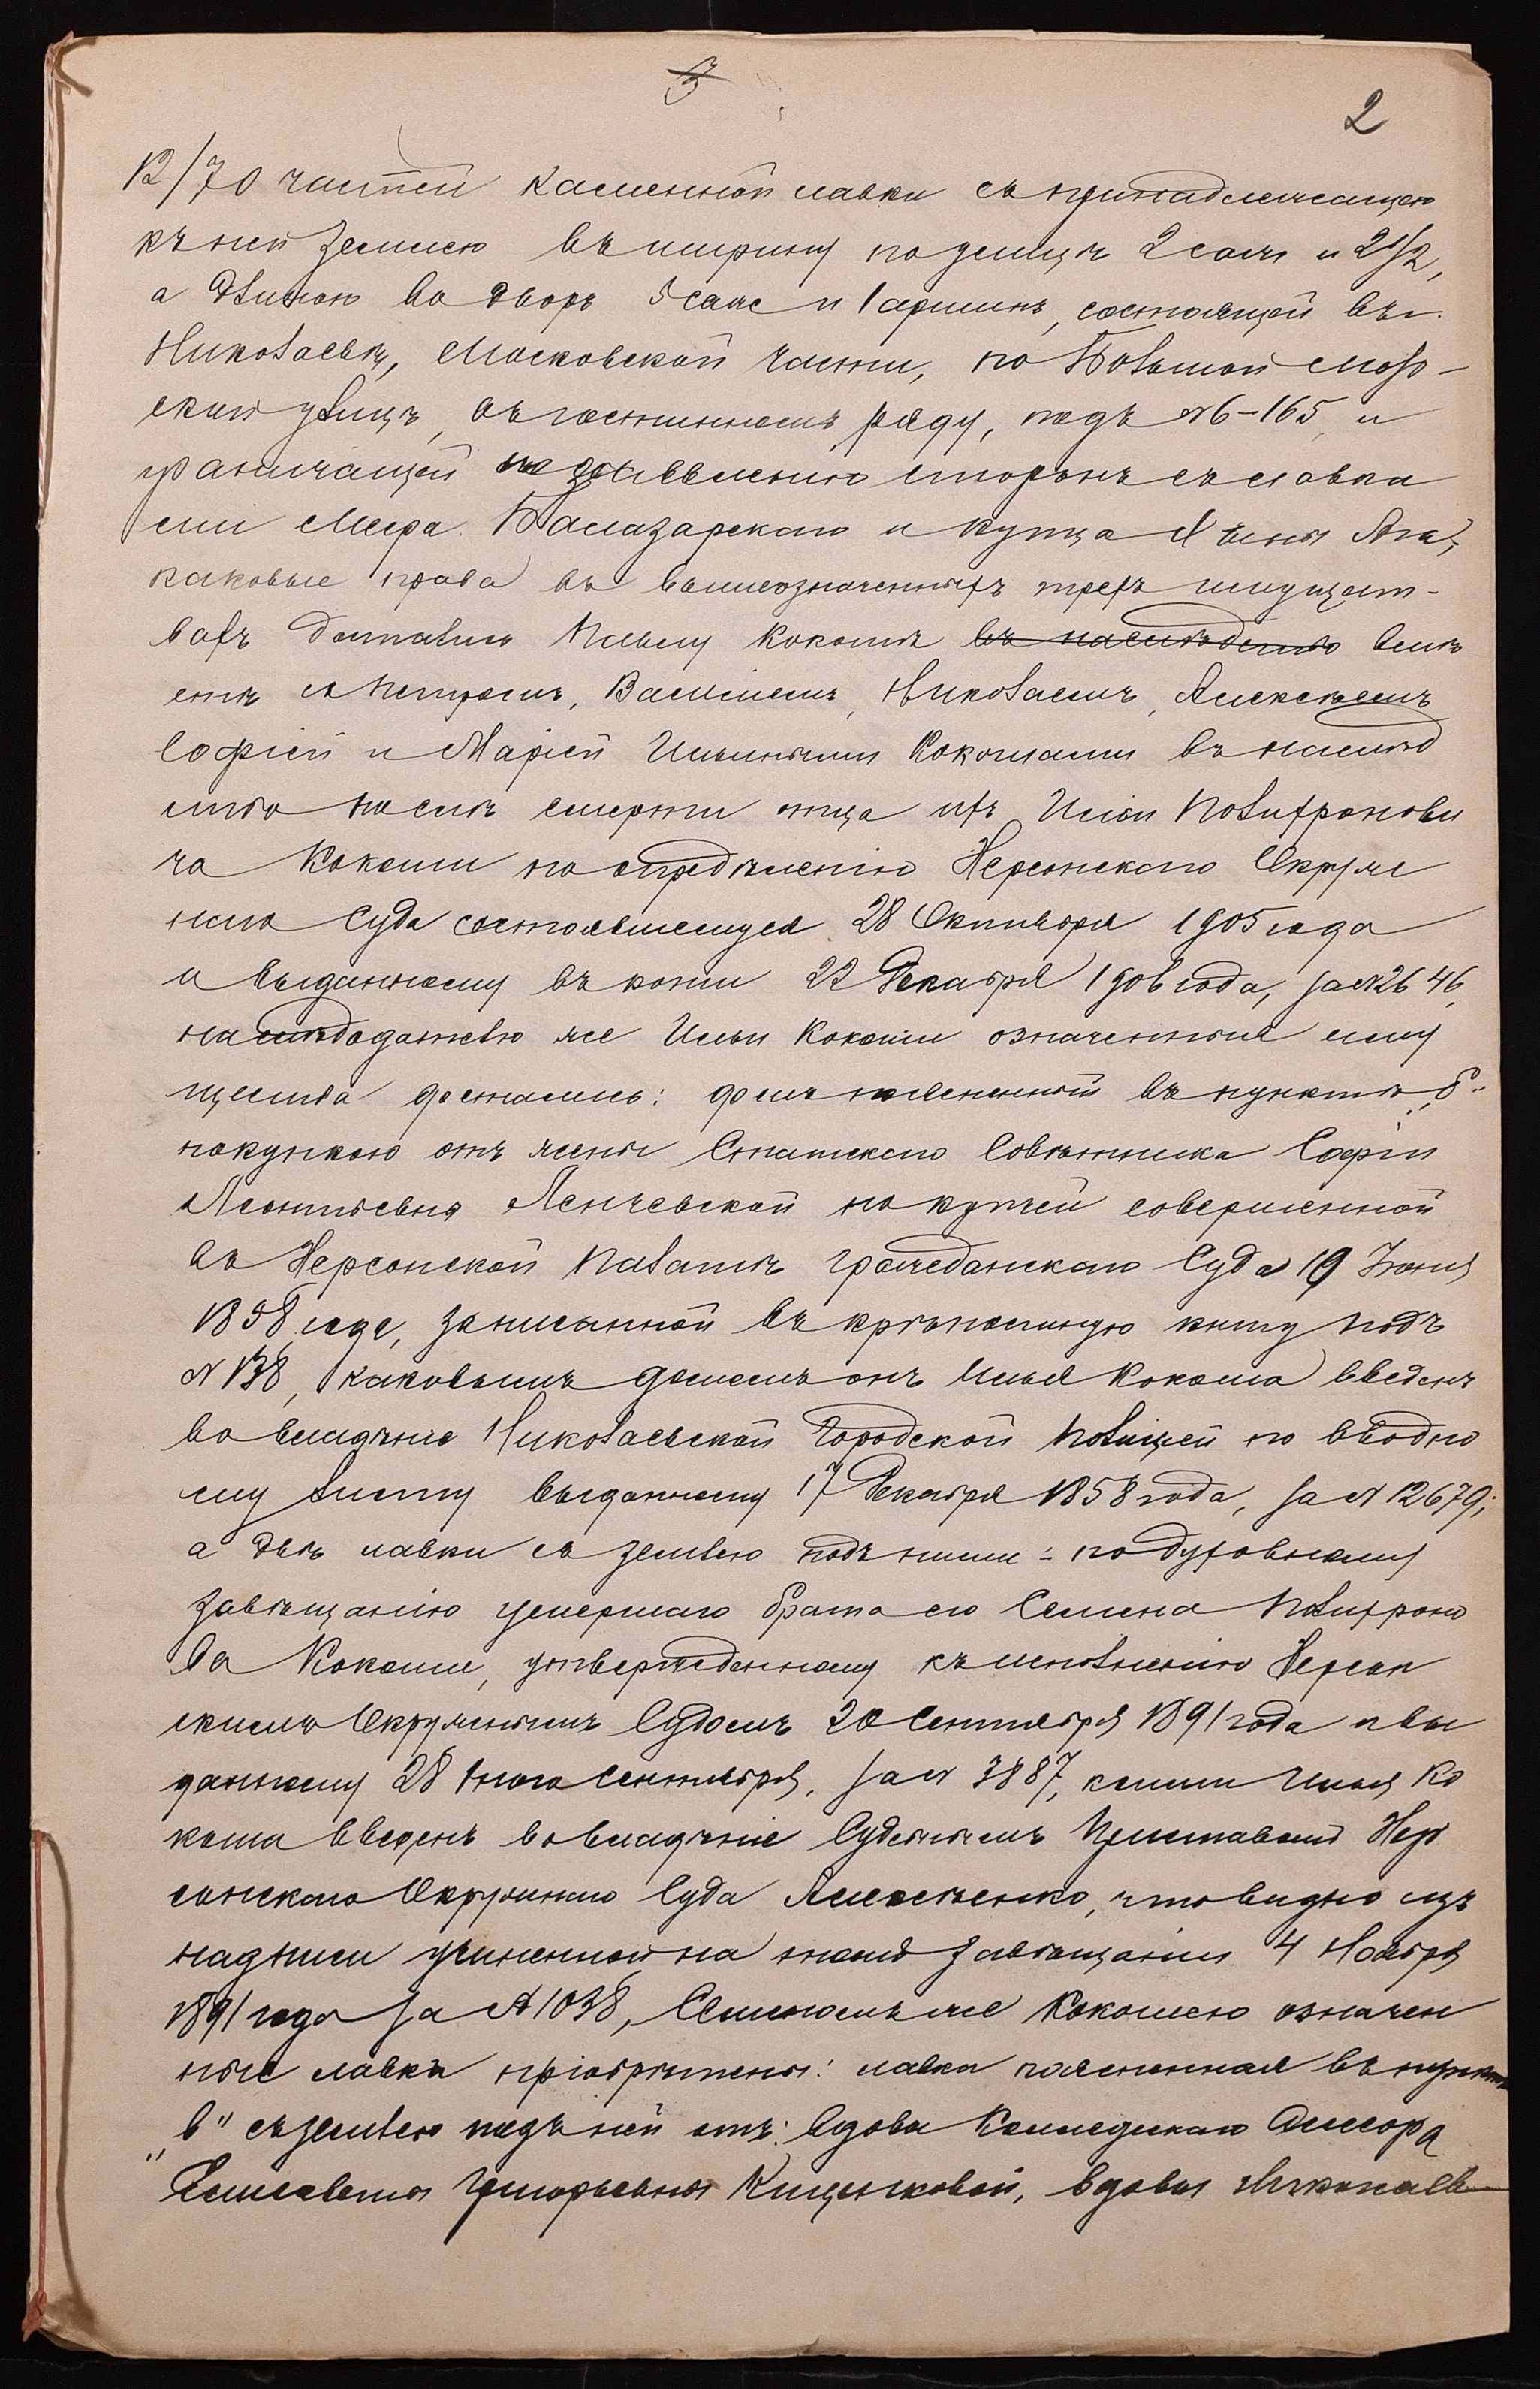 2
12/70 частей каменной лавки съ принадлежащею
къ ней землею въ ширину по улицѣ 2 саж и 2 1/2,
а длиною во дворъ 5 саж и 1 аршинъ, состоящей въ г.
Николаевѣ, Московской части, по Большой Мор-
ской улицѣ, въ гостинномъ ряду, подъ №6-165, и
граничащей по заявленію сторонъ съ лавка
ми Меера и купца
каковыя права въ вышеозначенныхъ трехъ имущест-
вахъ достались Павлу Кокошѣ въ наслѣдство вмѣ
стѣ съ Петромъ, Василіемъ, Николаемъ, Алексѣемъ
Софіей и Маріей Ильиными Кокошами въ наслѣд
ство послѣ смерти отца ихъ Ильи Полихронови
ча Кокоши по опредѣленію Херсонскаго Окруж
наго Суда состоявшемуся 28 Октября 1905 года
и выданному въ копіи 22 Декабря 1906 года, за №2646,
наслѣдодателю же Ильи Кокоши означенныя иму
щества достались: домъ поясненный въ пунктѣ „б"
покупкою отъ жены Статскаго Совѣтника Софіи
Леонтіевны по купчей совершенной
въ Херсонской Палатѣ Гражданскаго Суда 19 Іюня
1858 года, записанной въ крѣпостную книгу подъ
№ 138, каковымъ домомъ онъ Илья Кокоша введенъ
во владѣніе Николаевской Городской Полиціей по вводно
му листу выданному 17 Декабря 1858 года, за № 12679;
а двѣ лавки съ землею подъ ними: по духовному
завѣщанію умершаго брата его Семена Полихроно
ва Кокоши, утвержденному къ исполненію Херсон
скимъ Окружнымъ Судомъ 20 Сентября 1891 года и вы
данному 28 того Сентября, за № 3887, коими Илья Ко
коша введенъ во владѣніе Судебнымъ Приставомъ Хер
сонскаго Окружнаго Суда Алексѣенко, что видно изъ
надписи учиненной на томъ завѣщаніи 4 Ноября
1891 года за № 1038, Семеномъ же Кокошею означен
ныя лавки пріобрѣтены: лавка поясненная въ пунктѣ
„в" съ землею подъ ней отъ: вдовы Коллежскаго Асессора
Елисаветы Григорьевны вдовы